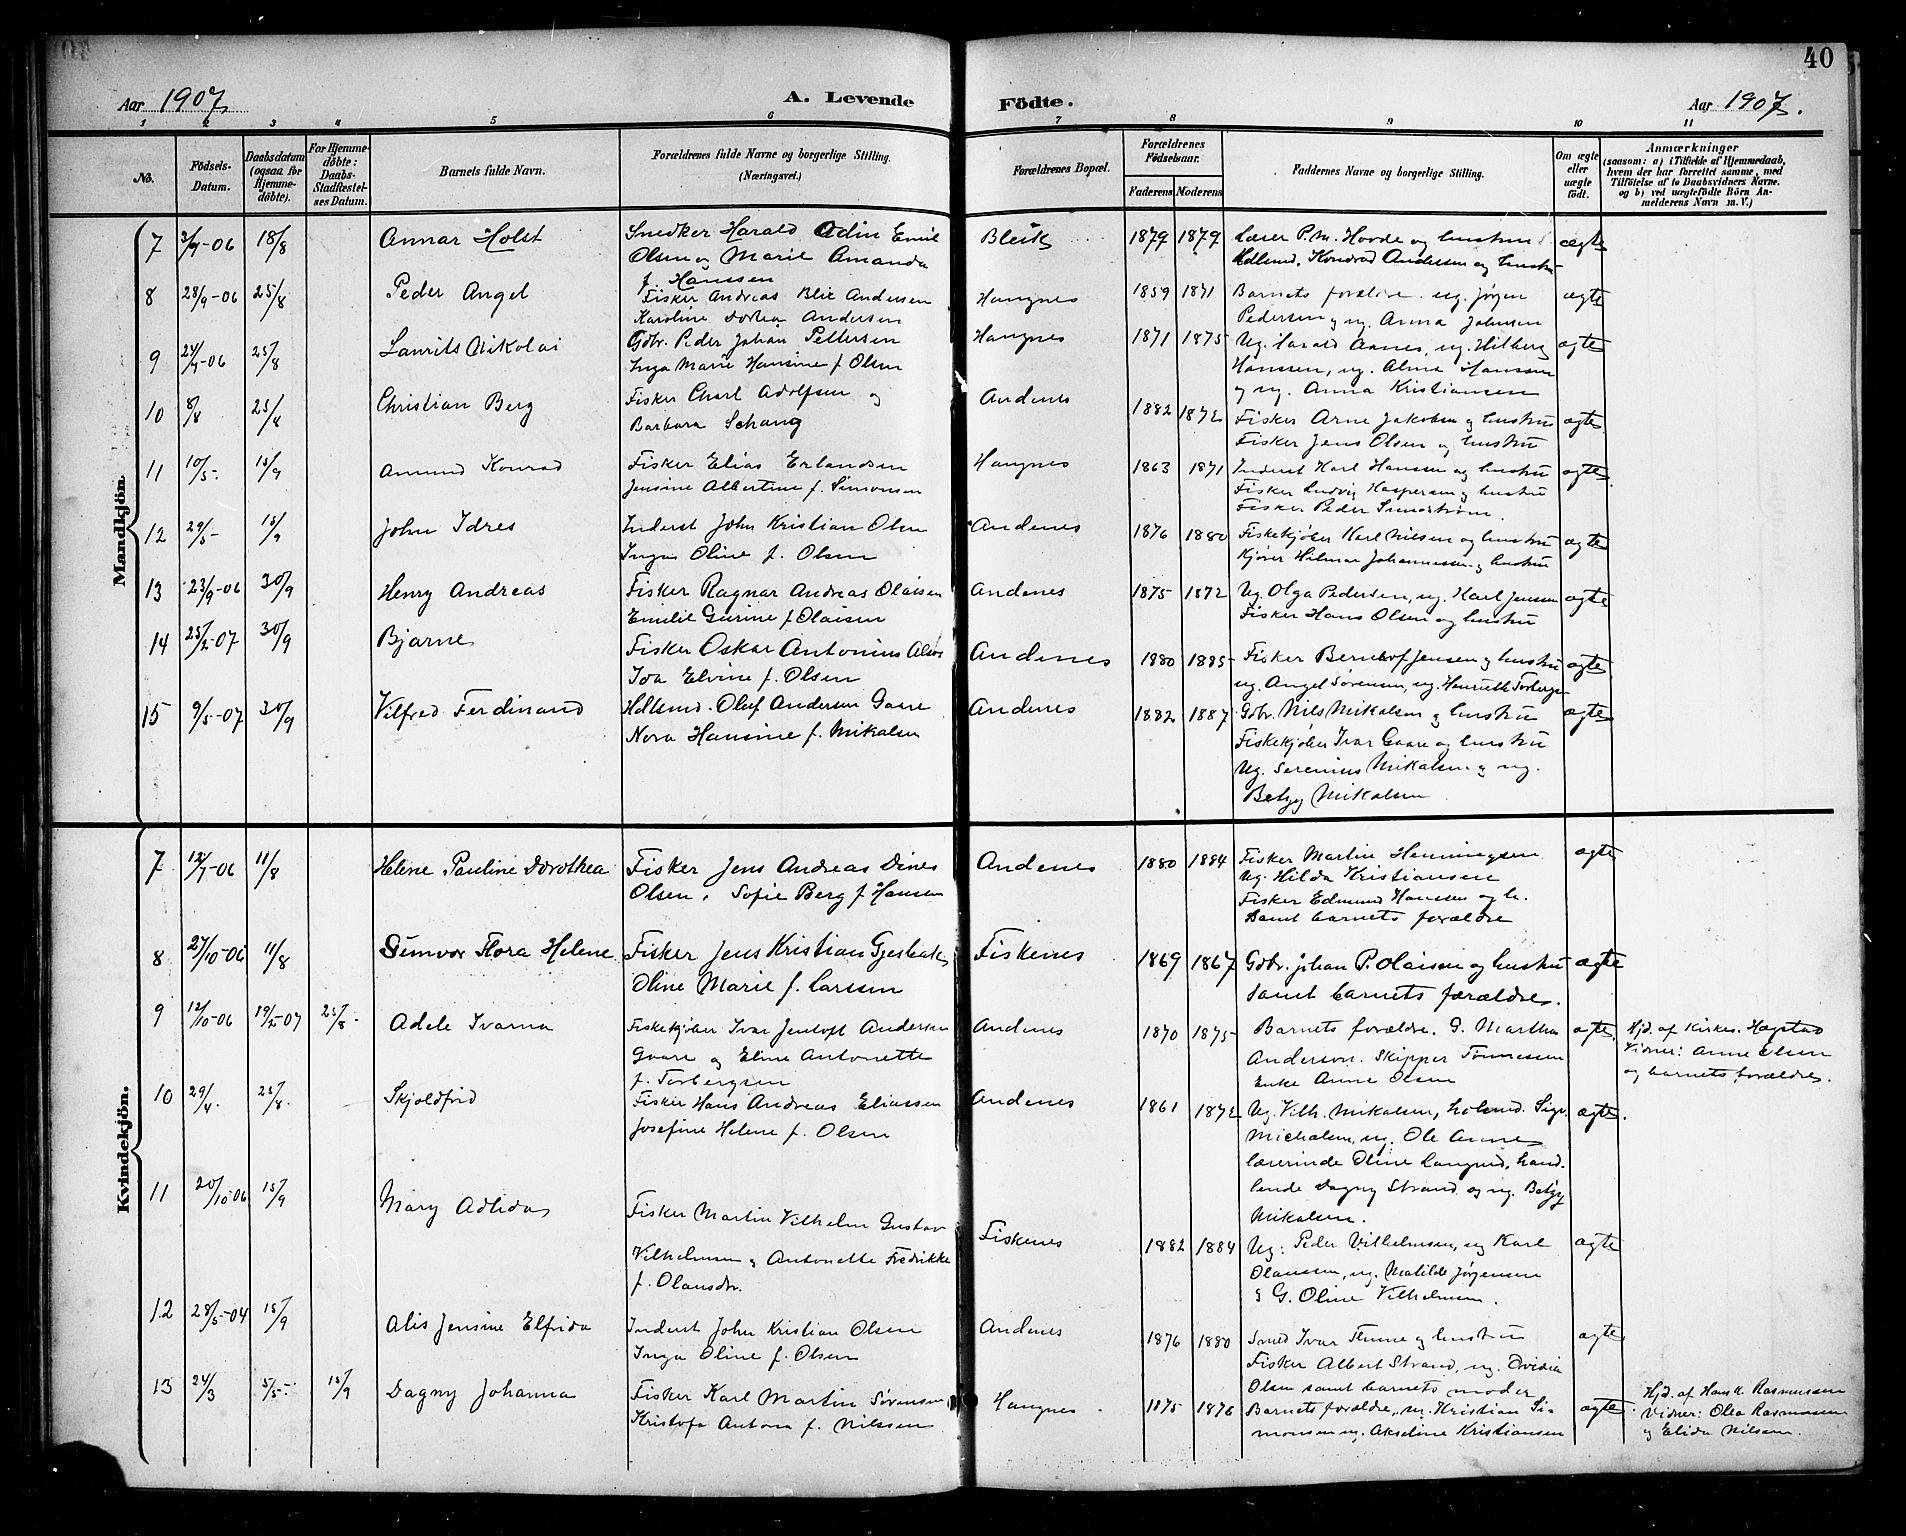 40
Aar 1907.
A. Levende
Födte.
Aar 1907.
1 2 3 4 5 6 7 8 9 10 11
No.
Födsels-
Datum.
Daabsdatum
(ogsaa for
Hjemme-
döbte).
For Hjemme-
döbte:
Daabs-
Stadfæstel-
ses Datum.
Barnets fulde Navn.
Forældrenes fulde Navne og borgerlige Stilling.
(Næringsvei.)
Forældrenes Bopæl.
Forældrenes
Födselsaar.
Faderens Moderens
Faddernes Navne og borgerlige Stilling.
Om ægte
eller
uægte
födt.
Anmærkninger
(saasom: a) i Tilfælde af Hjemmedaab,
hvem der har forrettet samme, med
Tilföielse af to Daabsvidners Navne.
og b) ved uægtefödte Börn An-
melderens Navn m. V.)
Mandkjön.
7 18/8 Annar Holst Snedker Harald Odin Emil
Olsen og Marie Amanda
f. Hanssen
Bleik 1879 1879 Lærer P. M. Hovde og hustru
Hdlsmd. Konrad Andersen og hustru
ægte
8 28/9-06 25/8 Peder Angel Fisker Andreas Blix Andersen
Karoline Dortea Andersen
Haugnes 1859 1871 Barnets forældre. ug. Jørgen
Pedersen og ug. Anna Johnsen
ægte
9 25/8 Laurits Nikolai Gdbr. Peder Johan Pettersen
Inga Marie Hansine f. Olsen
Haugnes 1871 1875 Ug. Harald Aanes, ug. Hilberg
Hanssen, ug. Alma Hanssen
og ug. Anna Kristiansen
ægte
10 8/8 25/8 Christian Berg Fisker Charl Adolfsen og
Barbara Schang
Andenes 1882 1872 Fisker Arne Jakobsen og hustru
Fisker Jens Olsen og hustru
ægte
11 10/5- 15/9 Amund Konrad Fisker Elias Erlandsen
Jensine Albertine f. Simonsen
Haugnes 1863 1871 Inderst Karl Hansen og hustru
Fisker Ludvig Kaspersen og hustru
Fisker Peder Sundstrøm.
ægte
12 29/5- 15/9 John Idres Inderst John Kristian Olsen
Inga Oline f. Olsen
Andenes 1876 1880 Fiskekjøber Karl Nilsen og hustru
Kjører Hilmar Johannessen og hustru
ægte
13 23/9-06 30/9 Henry Andreas Fisker Ragnar Andreas Olaisen
Emilie Gurine f. Olaisen
Andenes 1875 1872 Ug. Olga Pedersen, ug. Karl Jensen
Fisker Hans Olsen og hustru
ægte
14 25/2-07 30/9 Bjarne Fisker Oskar Antonius
Ida Elvine f. Olsen
Andenes 1880 1885 Fisker Berntof Jensen og hustru
ug. Angel Sørensen, ug. Henriette
ægte
15 9/5-07 30/9 Vilfred Ferdinand Hdlsmd. Oluf Andersen Gaare
Nora Hansine f. Mikalsen
Andenes 1882 1887 Gdbr. Nils Mikalsen og hustru
Fiskekjøber Ivar Gaare og hustru
Ug. Serenius Mikalsen og ug.
Betzy Mikalsen
ægte
Kvindekjön.
7 12/7-06 11/8 Helene Pauline Dorothea Fisker Jens Andreas Dines
Olsen. Sofie Berg f. Hansen
Andenes 1880 1884 Fisker Martin Henningsen
Ug. Hilda Kristiansen
Fisker Edmund Hanssen og h.
Samt barnets forældre
ægte
8 27/10-06 11/8 Simvor Flora Helene Fisker Jens Kristian
Oline Marie f. Larssen
Fiskenes 1869 1867 Gdbr. Johan P. Olaisen og hustru
samt barnets forældre.
ægte
9 12/10-06 19/2-07 25/8- Adele Ivarna Fiskekjøber Ivar Jentoft Andersen
Gaare og Eline Antonette
f. Torbergsen
Andenes 1870 1875 Barnets forældre. G. Martha
Anderson. Skipper Tønnessen
Enke Anne Olsen
ægte.
Hjd. af Kirkes. Hægstad
Vidner: Anne Olsen
og barnets forældre.
10 29/4. 25/8. Skjoldfrid Fisker Hans Andreas Eliassen
Josefine Helene f. Olsen
Andenes 1861 1872 Ug. Vilh. Mikalsen, Sigv.
Michalsen, ug. Ole Aanes
Lærerinde Oline Langnes, hand-
lende Dagny Strand og ug. Betzy
Mikalsen.
ægte.
11 20/10-06 15/9 Mary Adlida Fisker Martin Vilhelm Gustav
Vilhelmsen og Antonette Fredrikke
f. Olausdtr.
Fiskenes 1882 1884 Ug: Peder Vilhelmsen, ug Karl
Olaussen, ug. Matilde Jørgensen
& G. Oline Vilhelmsen.
ægte
12 28/5-04 15/9 Alis Jensine Elfrida Inderst John Kristian Olsen
Inga Oline f. Olsen
Andenes 1876 1880 Smed Ivar og hustru
Fisker Albert Strand, ug. Ovidia
Olsen samt barnets moder
ægte
13 24/3 5/5- 15/9 Dagny Johanna Fisker Karl Martin Sørensen
Kristofa Antona f. Nilssen
Haugnes 1875 1876 Barnets forældre, ug. Kristian Si-
monsen ug. Akseline Kristiansen
ægte.
Hjd. af Hans K. Rasmussen
Vidner: Olea Rasmussen
og Elida Nilsen.